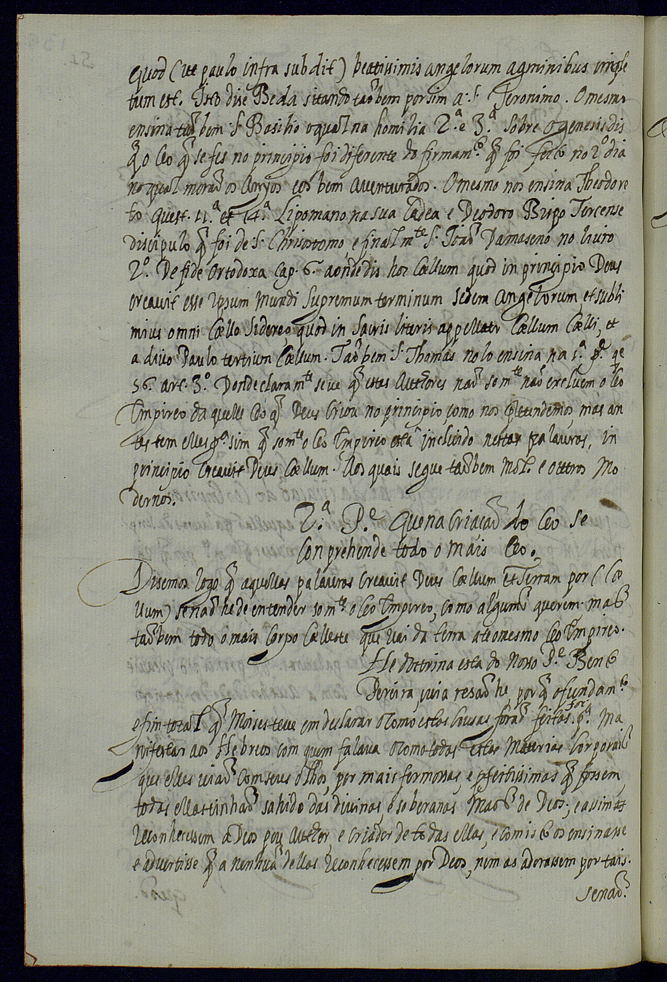 quod (ut paulo infra subdit) beatissimis angelorum agminibus
tum est. Isto dise Beda sitando taõbem por sim a S. Jeronimo. O mesmo
ensina taõbem S. Basilio o qual na homilia 2.ª e 3.ª sobre o genesis dis
q̃ o Ceo q̃ se fes no principio foi diferente do firmam.to q̃ foi feito no 2.º dia
no qual moraõ os Anjos e os bem aventurados. O mesmo nos ensina Theodore
to quest. 11.ª et 14.ª Lipomano na sua Cadea e Deodoro Bispo Tercense
discipulo q̃ foi de S. Chrisostomo e finalm.te S. Joaõ Damaseno no livro
2.º De fide Ortodoxa Cap. 6. aonde dis hoc Cællum quod in principio Deus
creavit esse ipsum mundi supremum terminum sedem angelorum et subli
mius omni Cællo Sidereo quod in sacris literis appellatur Cællum Cælli, et
a divo Paulo tertium Cællum. Taõbem S. Thomas no lo ensina na 1.ª p.e
art. 3.º Donde claram.te se ve q̃ estes Authores naõ som.te naõ excluem o Ceo
Impireo da quelle Ceo q̃ Deus criou no principio, como nos pertendemos, mas an
tes tem elles p.ª sim q̃ som.te o Ceo Impireo está incluido nestas palavras, in
principio creavit Deus Cællum. Aos quais segue taõbem Mol. e outros Mo
dernos.
2.ª P.e Que na criacaõ do Ceo se
Conprehende todo o mais Ceo.
Disemos logo q̃ aquellas palavras Creavit Deus Cællum et Terram por (Cæ
llum) senaõ ha de entender som.te o Ceo Impireo, como alguns querem. mas
taõbem todo o mais Corpo Cælleste que vai da terra ate o mesmo Ceo Impireo.
He doctrina esta do Nosso P.e Bento
Pereira, cuja resaõ he porq̃ o fundam.to
e fim total q̃ Moises teve em declarar o como estas cousas foraõ feitas foi p.ª ma
nifestar aos Hebreos com quem falava o como todas estas materias corporais
que elles viaõ com seus olhos, por mais fermosas, e perfeitissimas q̃ fossem
todas ellas tinhaõ sahido das divinas e soberanas maõs de Deos; e assim as
reconhecessem a Deos por Author, e criador de todas ellas, e com isto os ensinasse
e advertisse q̃ a nenhuã dellas reconhecessem por Deos, nem as adorassem por tais.
senaõ